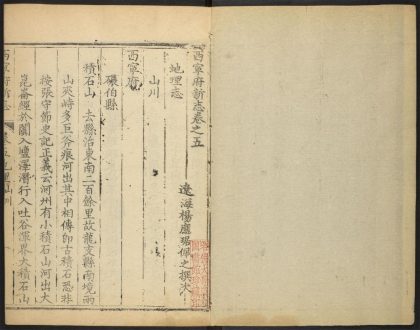 西寧府新志卷之五
遼海楊應琚佩之撰次
地理志
山川
西寧府
碾伯縣
積石山 去縣治東南二百餘里故龍支縣南境兩
山夾峙多巨斧痕河出其中相傳即古積石恐非
按張守節史記正義云河州有小積石山河出大
崑崙經於闐入鹽澤潛行入吐谷渾界大積石山
西寧府新志